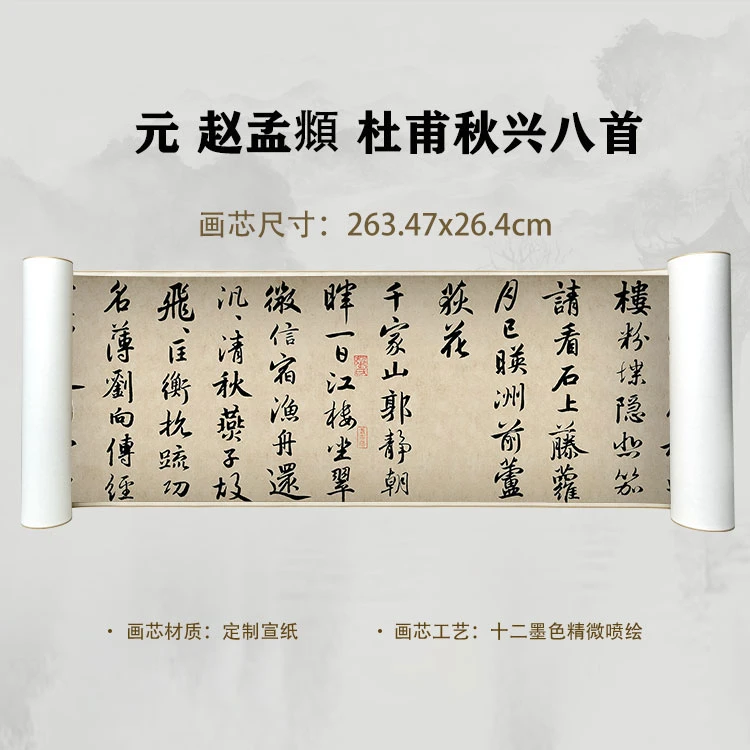 元 赵孟頫 杜甫秋兴八首
画芯尺寸：263.47x26.4cm
樓粉堞隐悲笳
請看石上藤蘿
月已暎洲前蘆
荻花
千家山郭静朝
暉一日江樓坐翠
微信宿漁舟還
汎〻清秋燕子故
飛〻匡衡抗疏功
名薄劉向傳經
· 画芯材质：定制宣纸
· 画芯工艺：十二墨色精微喷绘